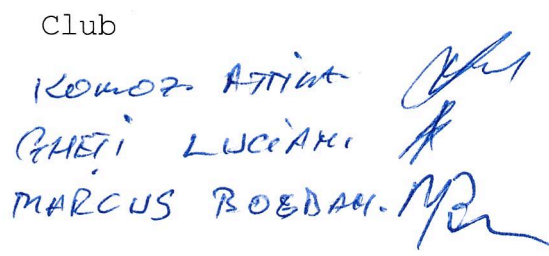 Club
KOMOZ ATTILA
GHEŢI LUCIAN.
MARCUS BOGDAN.